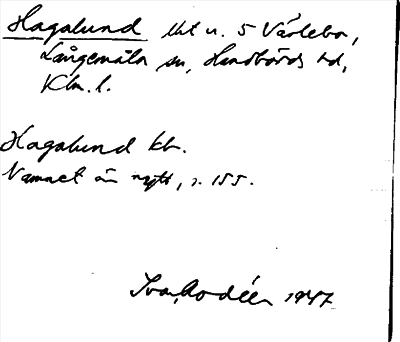 Hagalund lht u. 5 Värlebo,
Långemåla sn, Handbörds hd,
Klm. l.
Hagalund kb.
Namnet är nytt, s. 155.
Ivar Modéer 1947